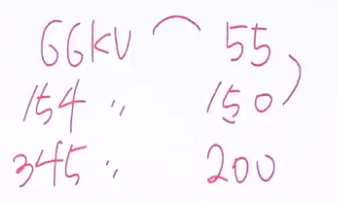 66KV 55
154 〃 150
345 〃 200